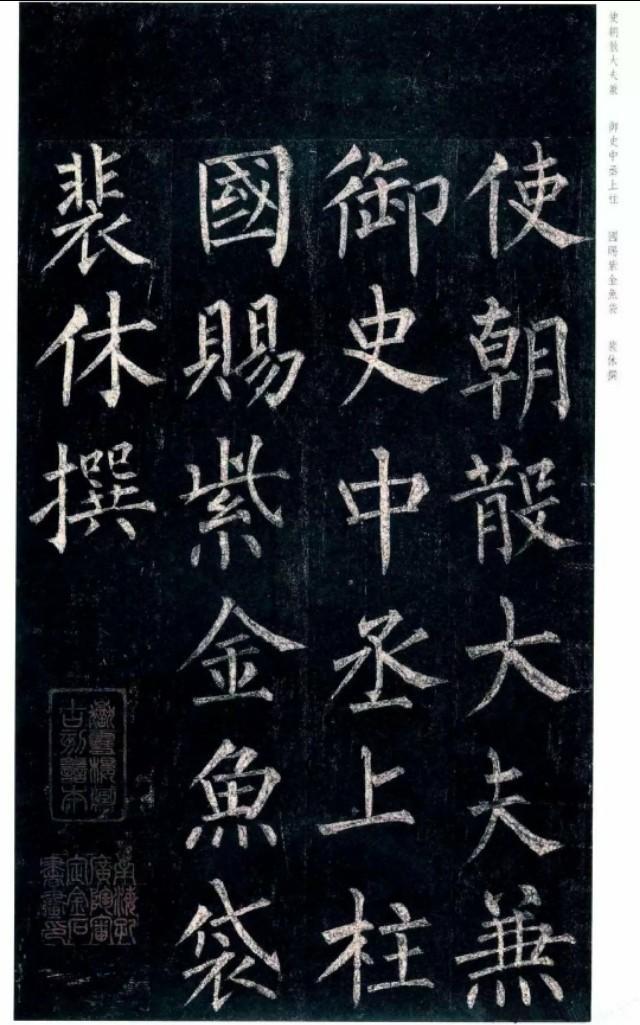 使朝散大夫兼
御史中丞上柱
國賜紫金魚袋
裴休撰
使朝散大夫兼 御史中丞上柱 國賜紫金魚袋 裴休撰